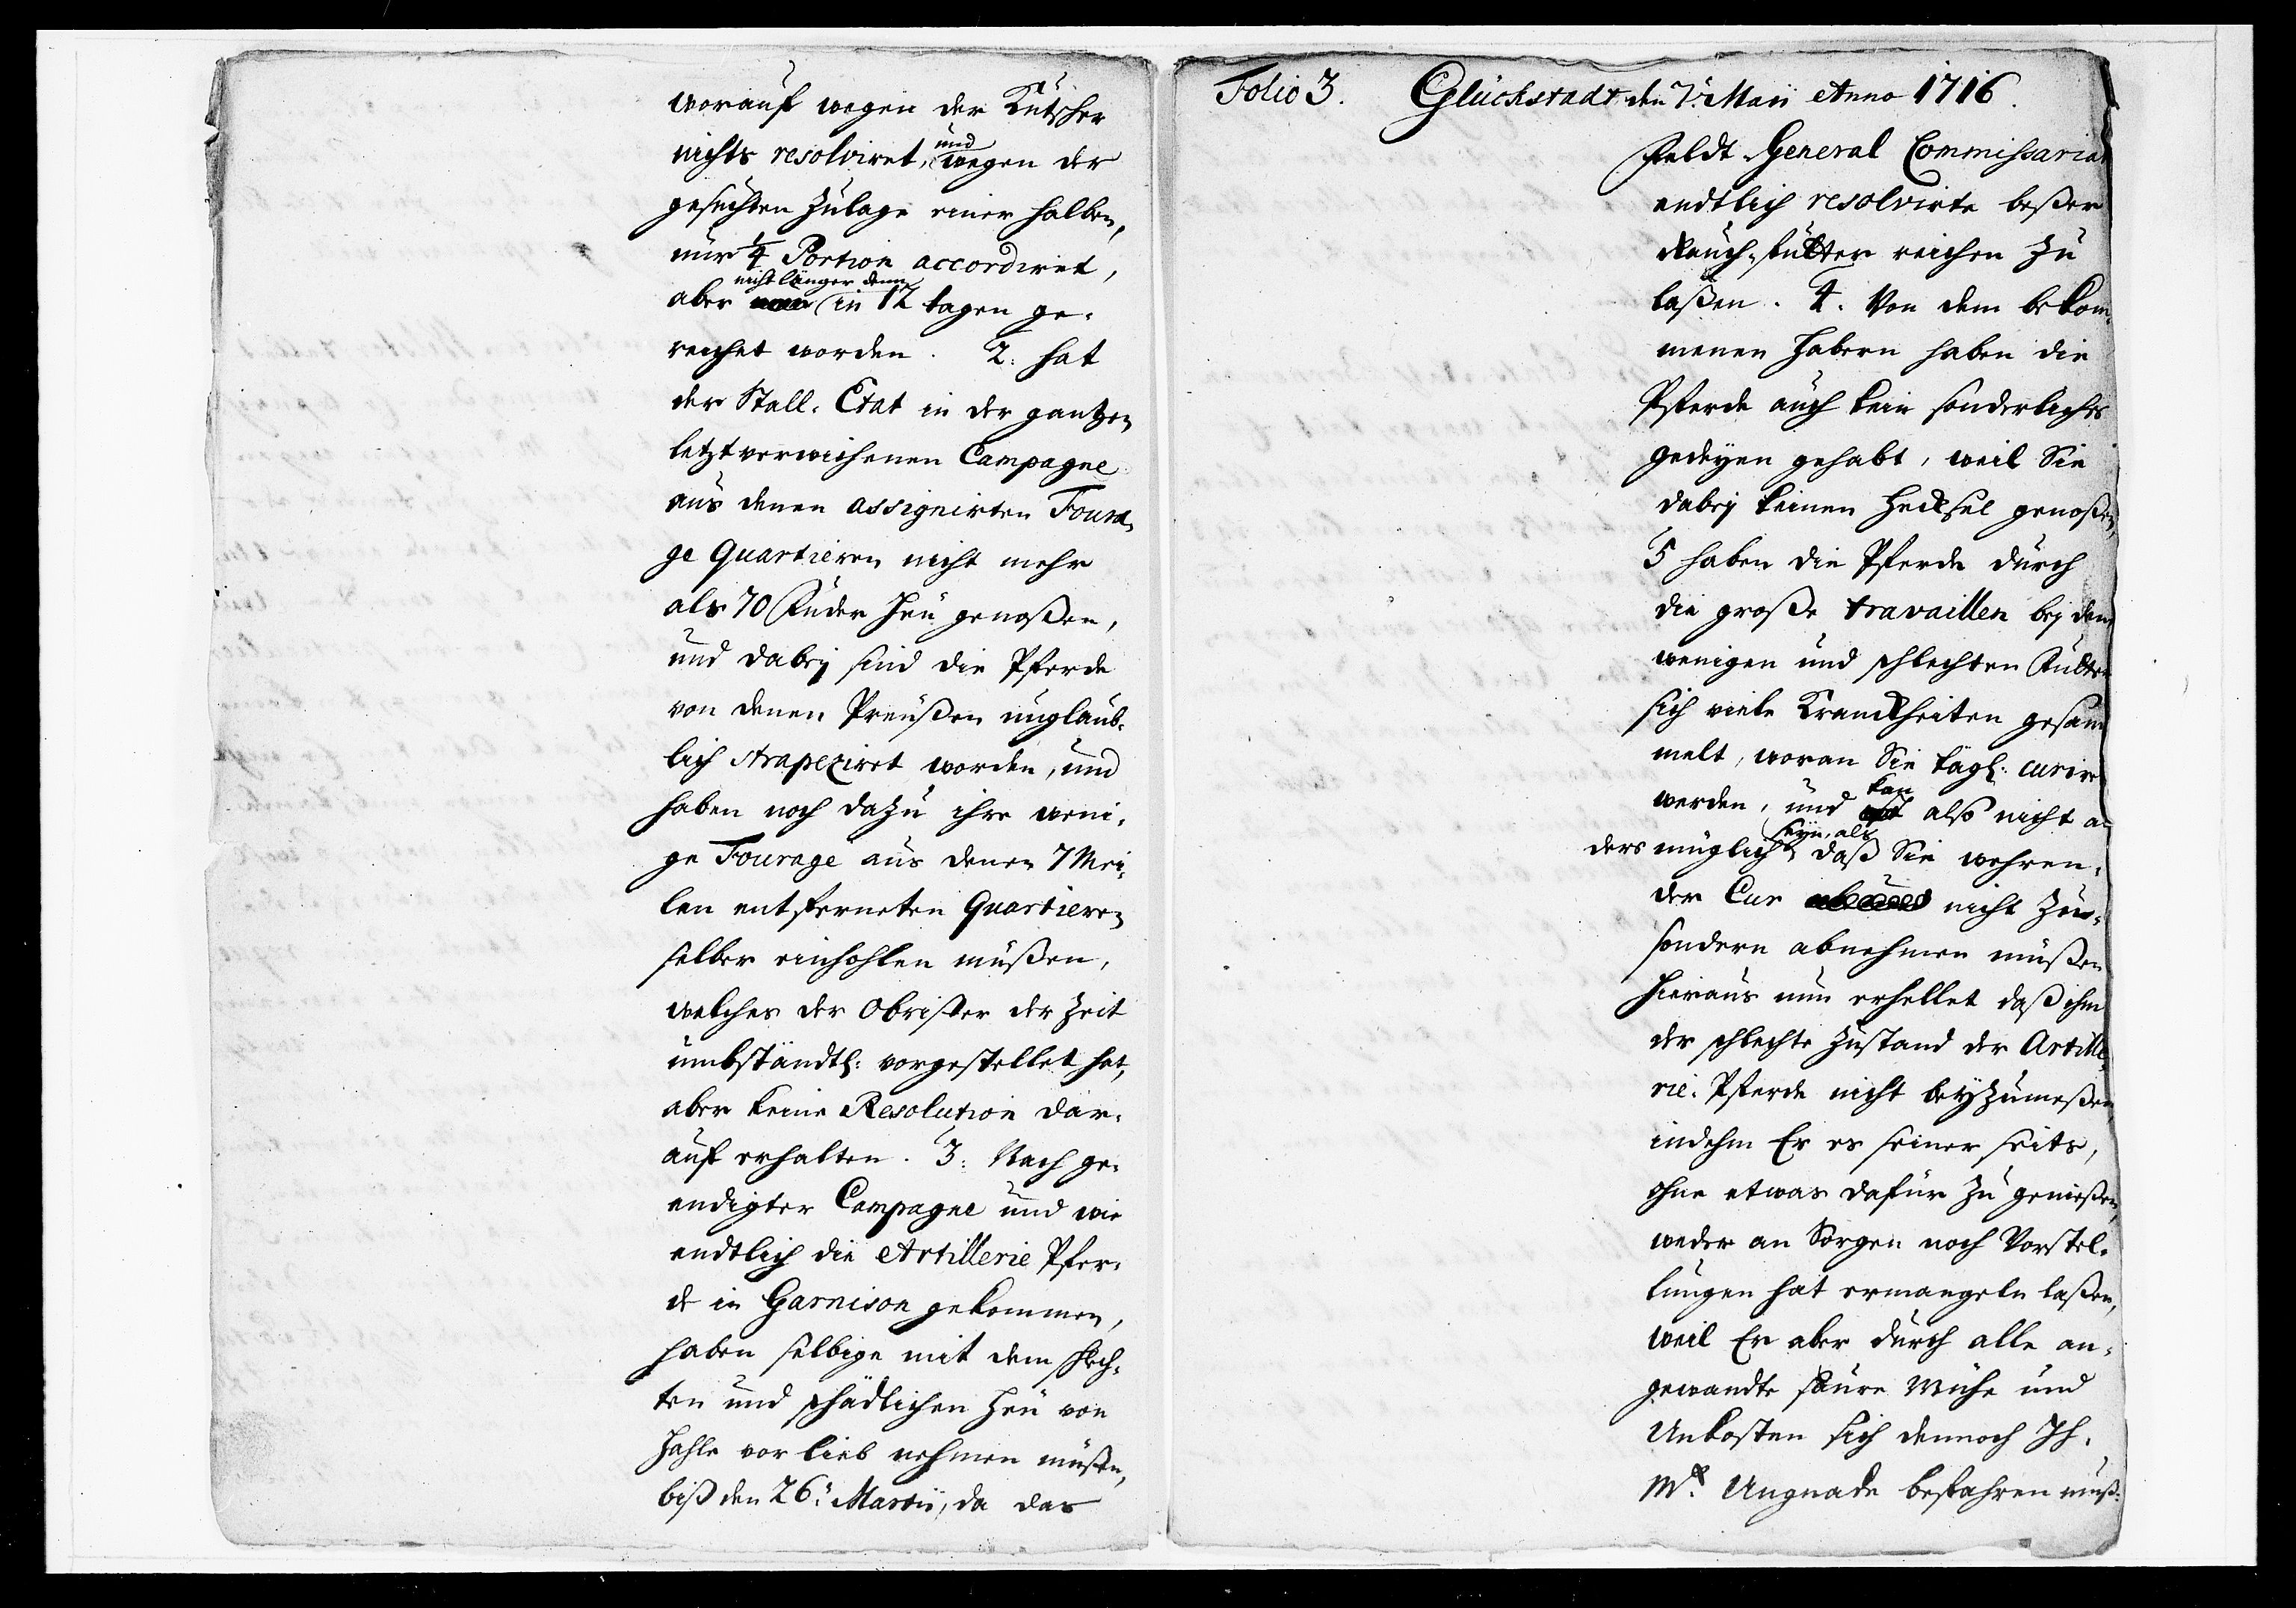 worauf wegen der Kutscher
nichts resolviret, und wegen der
gesuchten Zulage einer halben,
nur 1/4 Portion accordiret,
aber nicht länger denn in 12 tagen ge-
reichet worden. 2. hat
der Stall-Etat in der gantzen
letztverwichenen Campagne
aus denen assignirten Foura-
ge Quartieren nicht mehr
als 70 Fuder Heu genoßen,
und dabey sind die Pferde
von denen Preußen unglaub-
lich strapeziret worden, und
haben noch dazu ihre weni-
ge Fourage aus denen 7 Mei-
len entferneten Quartieren
selber einhohlen müßen,
welches der Obrister der Zeit
umbständtl: vorgestellet hat,
aber keine Resolution dar-
auf erhalten. 3: Nach ge-
endigter Campagne und wie
endtlich die Artillerie Pfer-
de in Garnison gekommen,
haben selbige mit dem schlech-
ten und schädlichen Heu von
Hahle vor lieb nehmen müßen,
biß den 26: Martii, da das
Folio 3. Glückstadt den 7: Maii Anno 1716.
Feldt-General Commissariat
endtlich resolvirte beßer
Rauch-futter reichen zu
laßen. 4. Von dem bekom-
menen Habern haben die
Pferde auch kein sonderliches
gedeyen gehabt, weil Sie
dabey keinen Hecksel genoßen,
5 haben die Pferde durch
die große travaillen bey dem
wenigen und schlechten Futter
sich viele Kranckheiten gesam
melt, woran Sie tägl: curiret
werden, und kan also nicht an
ders müglich seyn, als daß Sie wehren-
der Cur nicht zu-
sondern abnehmen müßen
Hieraus nun erhellet daß ihm
der schlechte Zustand der Artille-
rie-Pferde nicht beyzumeßen,
indehm Er es seiner seits,
ohne etwas dafür zu genießen,
weder an Sorgen noch Vorstel-
lungen hat ermangeln laßen,
weil Er aber durch alle an-
gewandte saure Mühe und
Unkosten sich dennoch Ih.
M. Ungnade befahren muß.